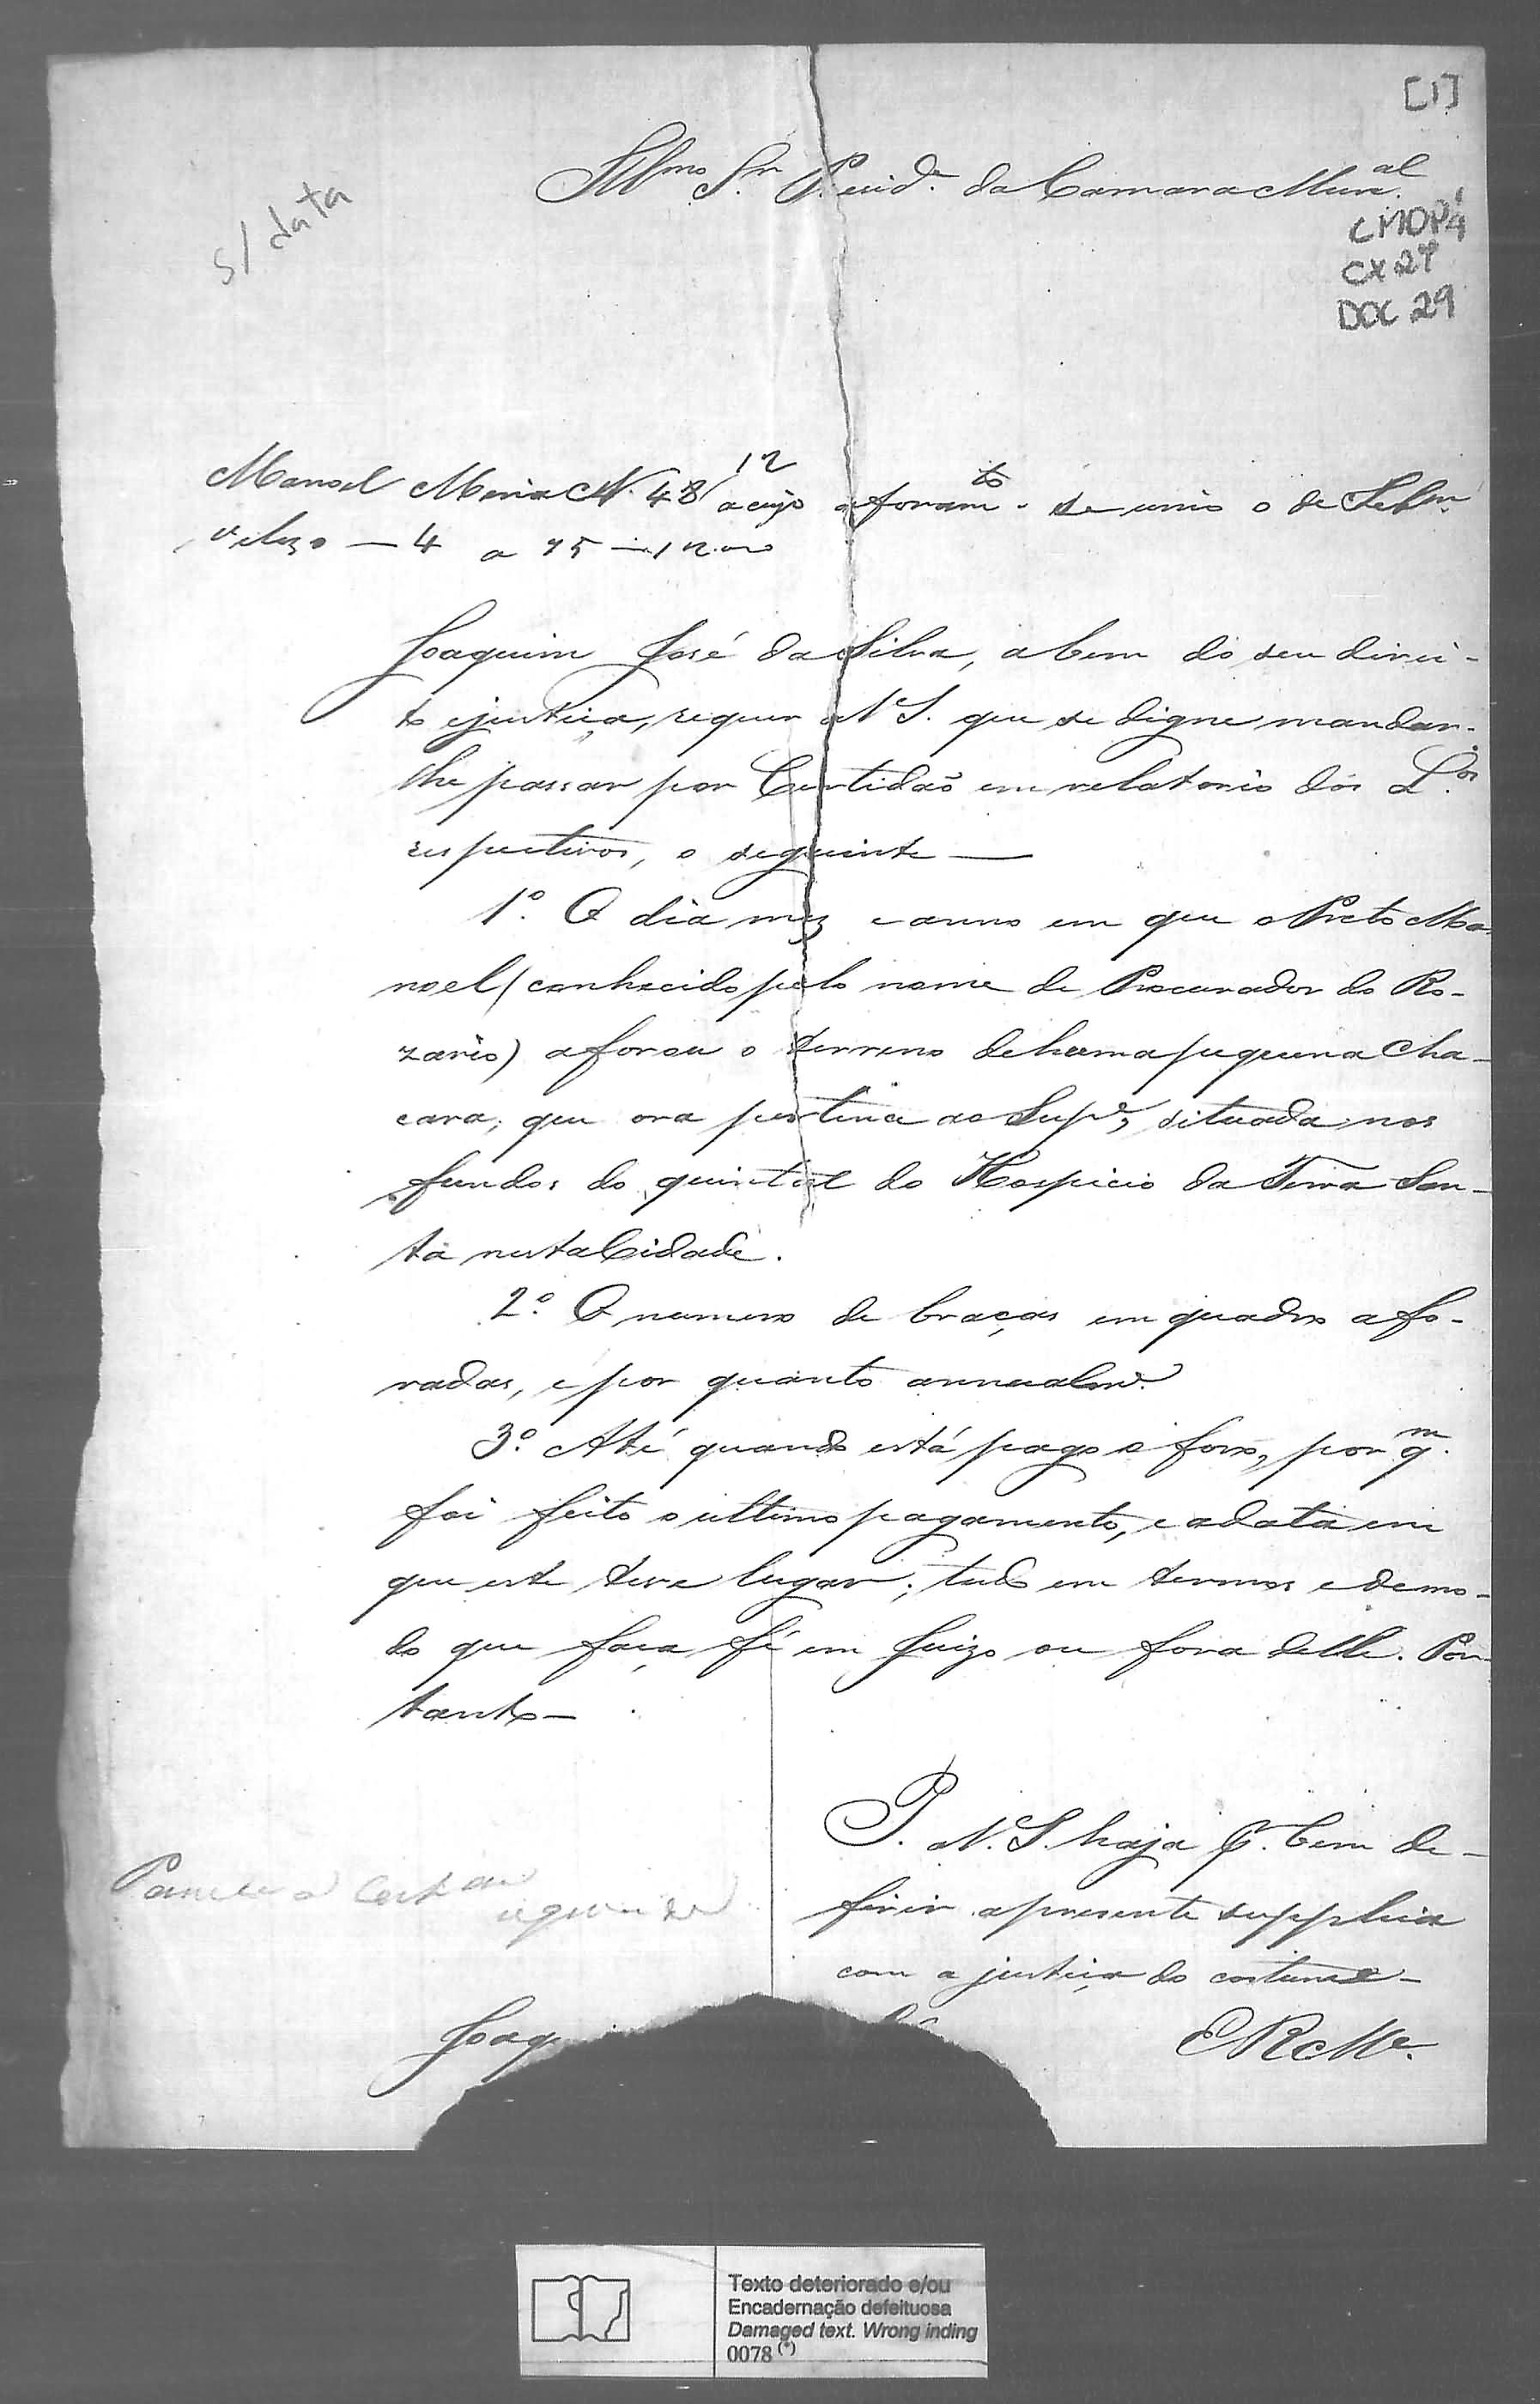 [1]
Illmo Sr. Presid.e da Camara Mun.al
s/ data
CMOP
CX 29
DOC 29
Manoel N. 48 12 a cujo aforam.to se unio o de
Velozo — 4 a 75
Joaquim José da Silva, a bem do seu direi-
to e justiça, requer a V S. que se digne mandar-
lhe passar por Certidaõ em relatorio dos L.os
respectivos, o seguinte —
1º. O dia mez e anno em que o Preto Ma
noel (conhecido pelo nome de Procurador do Ro-
zario) aforou o terreno de huma pequena Cha-
cara, que ora pertence ao Sup.e, situada nos
fundos do quintal do Hospicio da Terra San-
ta nesta Cidade.
2º. O numero de braças em quadro afo-
radas, e por quanto annualm.e
3º. Até quando está pago o foro, por q.m
foi feito o ultimo pagamento, e a data em
que este teve lugar; tudo em termos e de mo-
do que faça fé em Juizo ou fora delle. Por-
tanto —
P. a V. S. haja p.r bem de-
ferir a presente supplica
com a justiça do costume —
E R Mce.
Joaqu
Texto deteriorado e/ou
Encadernação defeituosa
Damaged text. Wrong inding
0078 (*)